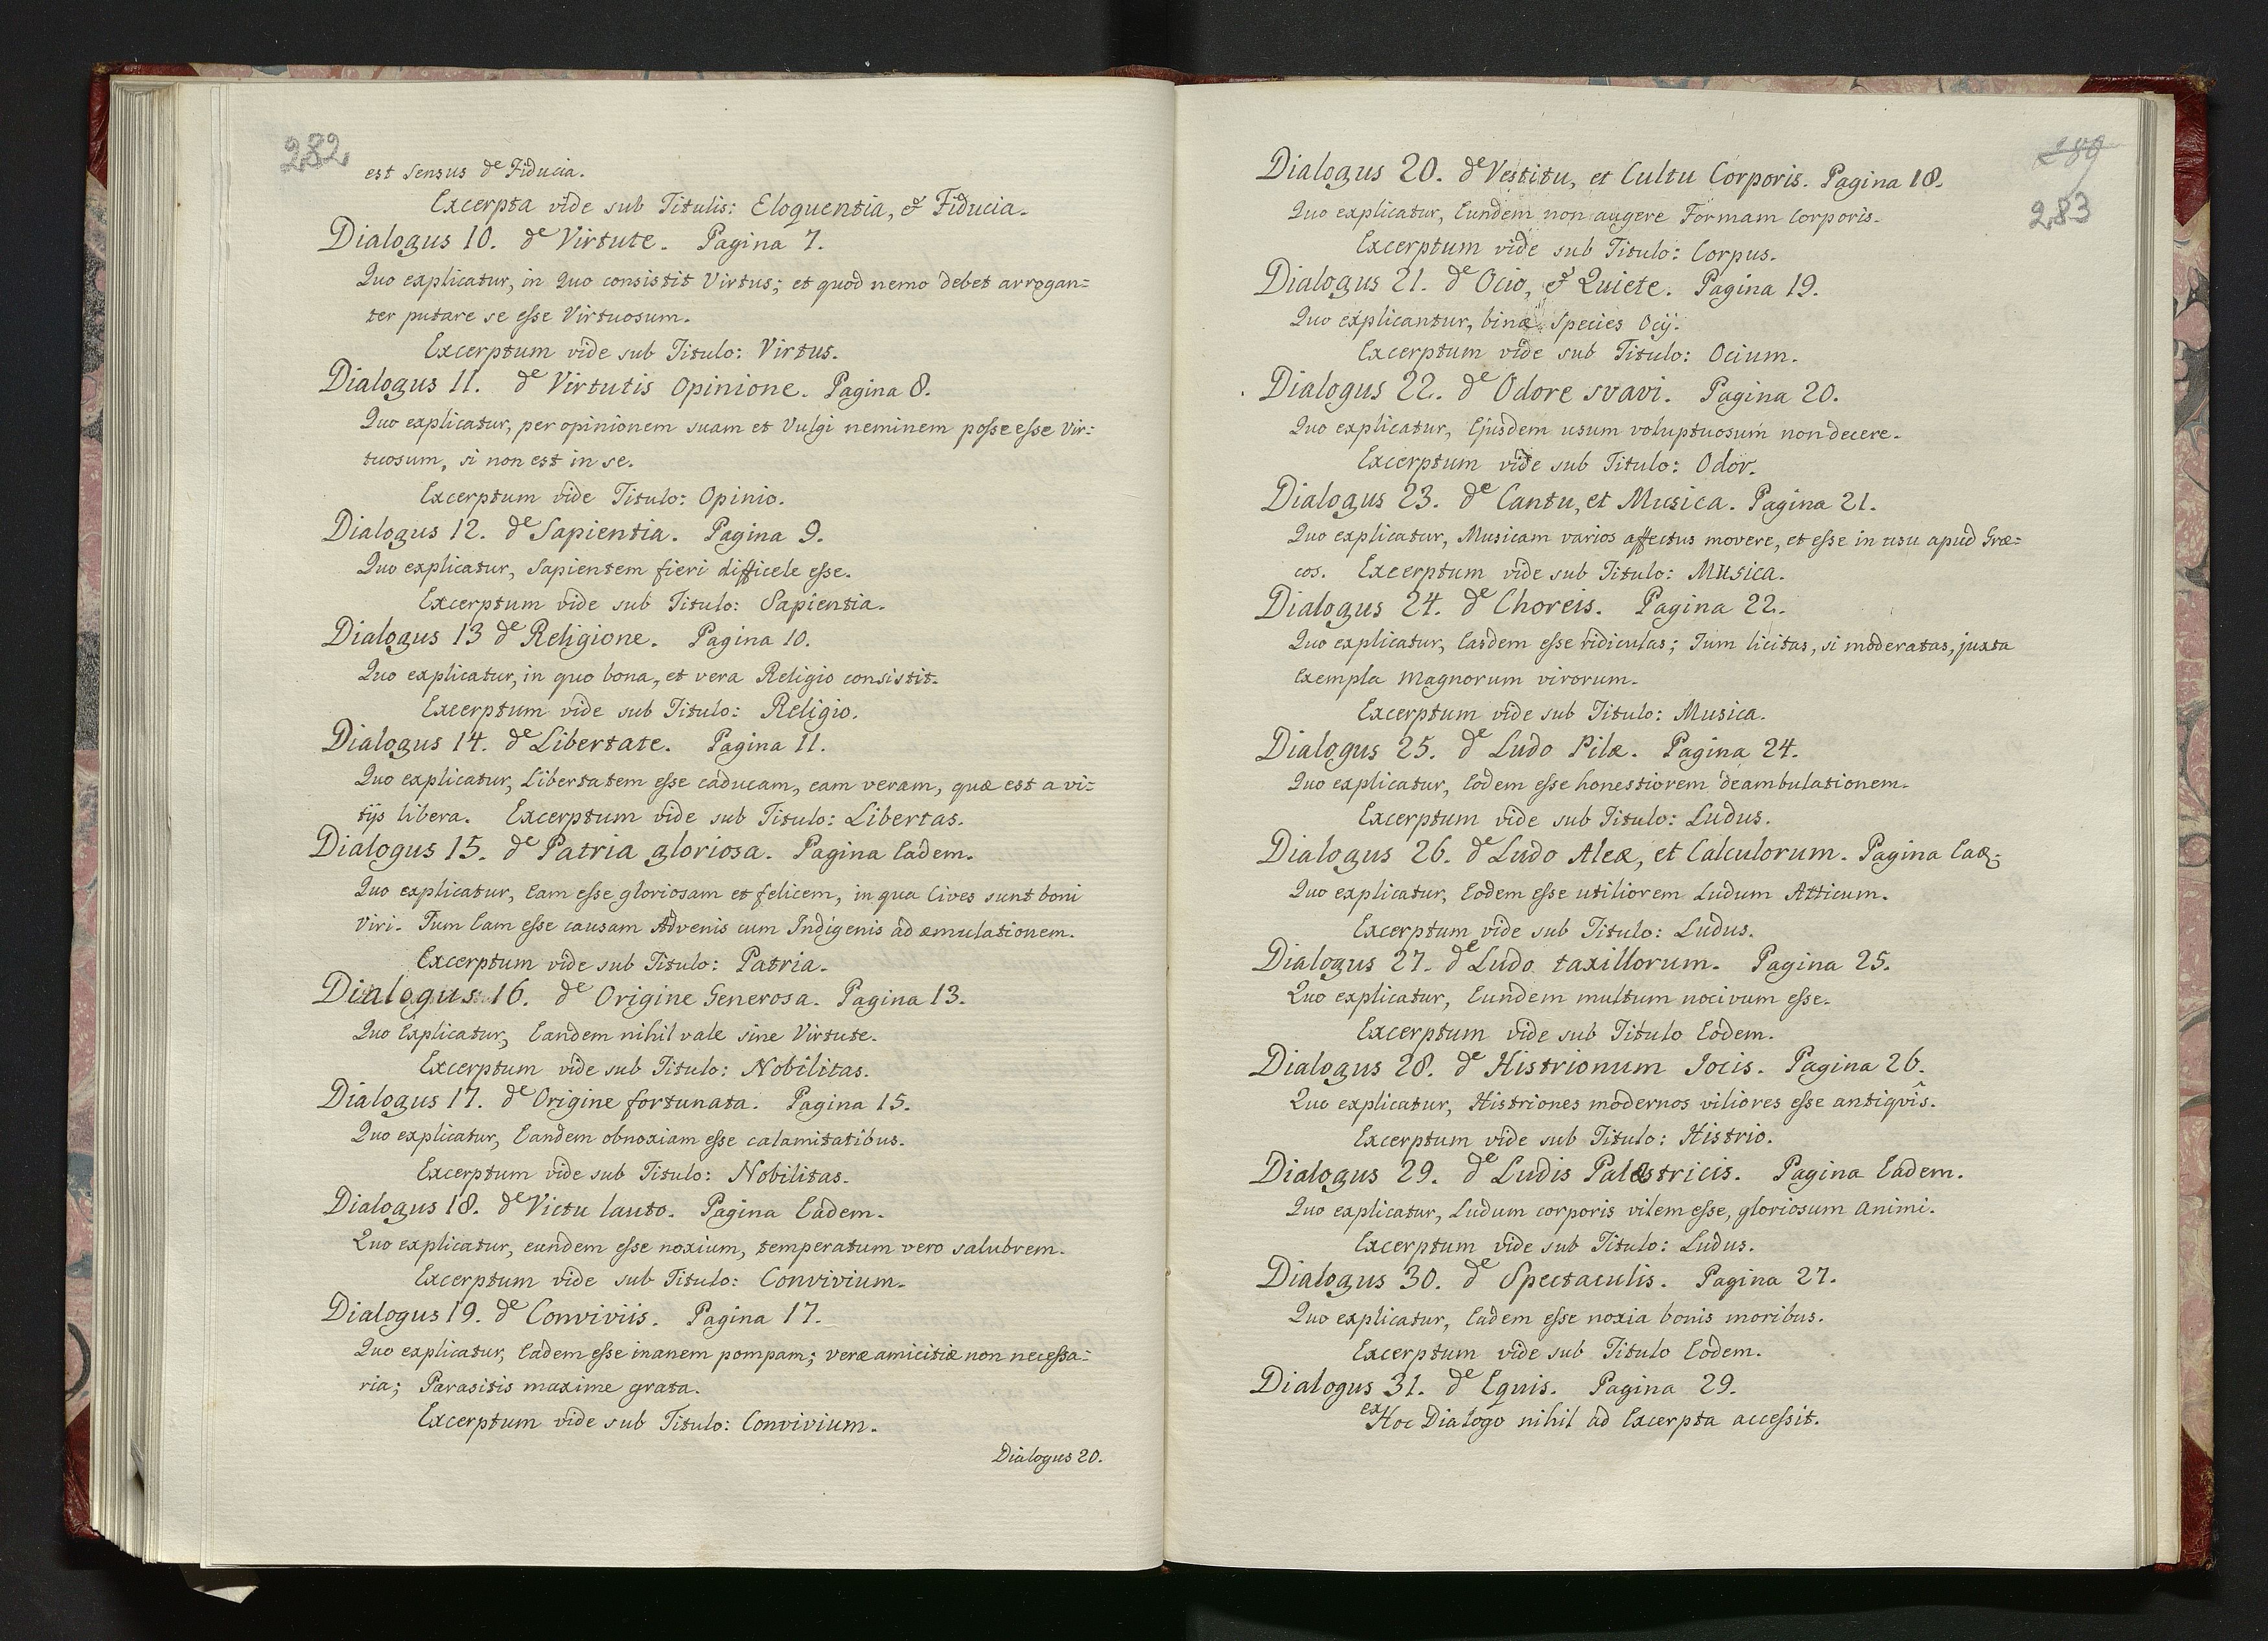 282
est sensus de Fiducia.
Excerpta vide sub Titulis: Eloquentia, et Fiducia.
Dialogus 10. de Virtute. Pagina 7.
Quo explicatur, in quo consistit Virtus; et quod nemo debet arrogan=
ter putare se esse Virtuosum.
Excerptum vide sub Titulo: Virtus.
Dialogus 11. de Virtutis Opinione. Pagina 8.
Quo explicatur, per opinionem suam et Vulgi neminem posse esse Vir=
tuosum, si non est in se.
Excerptum vide Titulo: Opinio.
Dialogus 12. de Sapientia. Pagina 9.
Quo explicatur, Sapientem fieri difficele esse.
Excerptum vide sub Titulo: Sapientia.
Dialogus 13 de Religione. Pagina 10.
Quo explicatur, in quo bona, et vera Religio consistit.
Excerptum vide sub Titulo: Religio.
Dialogus 14. de Libertate. Pagina 11.
Quo explicatur, Libertatem esse caducam, eam veram, quæ est a vi=
tijs libera. Excerptum vide sub Titulo: Libertas.
Dialogus 15. de Patria gloriosa. Pagina Eadem.
Quo explicatur, Eam esse gloriosam et felicem, in qua Cives sunt boni
Viri. Tum Eam esse causam Advenis cum Indigenis ad æmulationem.
Excerptum vide sub Titulo: Patria.
Dialogus 16. de Origine Generosa. Pagina 13.
Quo Explicatur, Eandem nihil vale sine Virtute.
Excerptum vide sub Titulo: Nobilitas.
Dialogus 17. de Origine fortunata. Pagina 15.
Quo explicatur, Eandem obnoxiam esse calamitatibus.
Excerptum vide sub Titulo: Nobilitas.
Dialogus 18. de Victu lauto. Pagina Eadem.
Quo explicatur, eundem esse noxium, temperatum vero salubrem.
Excerptum vide sub Titulo: Convivium.
Dialogus 19. de Conviviis. Pagina 17.
Quo explicatur, Eadem esse inanem pompam; veræ amicitiæ non necessa=
ria; Parasitis maxime grata.
Excerptum vide sub Titulo: Convivium.
Dialogus 20.
289
283
Dialogus 20. de Vestitu, et Cultu Corporis. Pagina 18.
Quo explicatur, Eundem non augere Formam Corporis.
Excerptum vide sub Titulo: Corpus.
Dialogus 21. de Ocio, et Quiete. Pagina 19.
Quo explicantur, binæ Species Ocij.
Excerptum vide sub Titulo: Ocium.
Dialogus 22. de Odore svavi. Pagina 20.
Quo explicatur, Ejusdem usum voluptuosum non decere.
Excerptum vide sub Titulo: Odor.
Dialogus 23. de Cantu, et Musica. Pagina 21.
Quo explicatur, Musicam varios affectus movere, et esse in usu apud Græ=
cos. Excerptum vide sub Titulo: Musica.
Dialogus 24. de Choreis. Pagina 22.
Quo explicatur, Easdem esse ridiculas; Tum licitas, si moderatas, juxta
Exempla Magnorum virorum.
Excerptum vide sub Titulo: Musica.
Dialogus 25. de Ludo Pilæ. Pagina 24.
Quo explicatur, Eodem esse honestiorem deambulationem.
Excerptum vide sub Titulo: Ludus.
Dialogus 26. de Ludo Aleæ, et Calculorum. Pagina Ead:
Quo explicatur, Eodem esse utiliorem Ludum Atticum.
Excerptum vide sub Titulo: Ludus.
Dialogus 27. de Ludo taxillorum. Pagina 25.
Quo explicatur, Eundem multum nocivum esse.
Excerptum vide sub Titulo Eodem.
Dialogus 28. de Histrionum Jocis. Pagina 26.
Quo explicatur, Histriones modernos viliores esse antiqvîs.
Excerptum vide sub Titulo: Histrio.
Dialogus 29. de Ludis Palæstricis. Pagina Eadem.
Quo explicatur, Ludum corporis vilem esse, gloriosum Animi.
Excerptum vide sub Titulo: Ludus.
Dialogus 30. de Spectaculis. Pagina 27.
Quo explicatur, Eadem esse noxia bonis moribus.
Excerptum vide sub Titulo Eodem.
Dialogus 31. de Equis. Pagina 29.
ex Hoc Dialogo nihil ad Excerpta accessit.